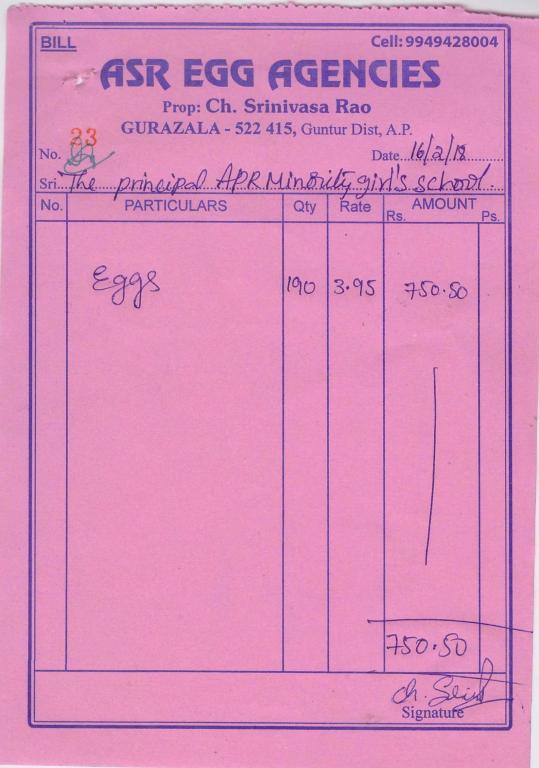 BILL Cell: 9949428004
ASR EGG AGENCIES
Prop: Ch. Srinivasa Rao
GURAZALA - 522 415, Guntur Dist, A.P.
23
No. Date 16/2/18
Sri The principal APR Minority girl's school.
No. PARTICULARS Qty Rate AMOUNT
Rs. Ps.
Eggs 190 3.95 750.50
750.50
Ch.
Signature